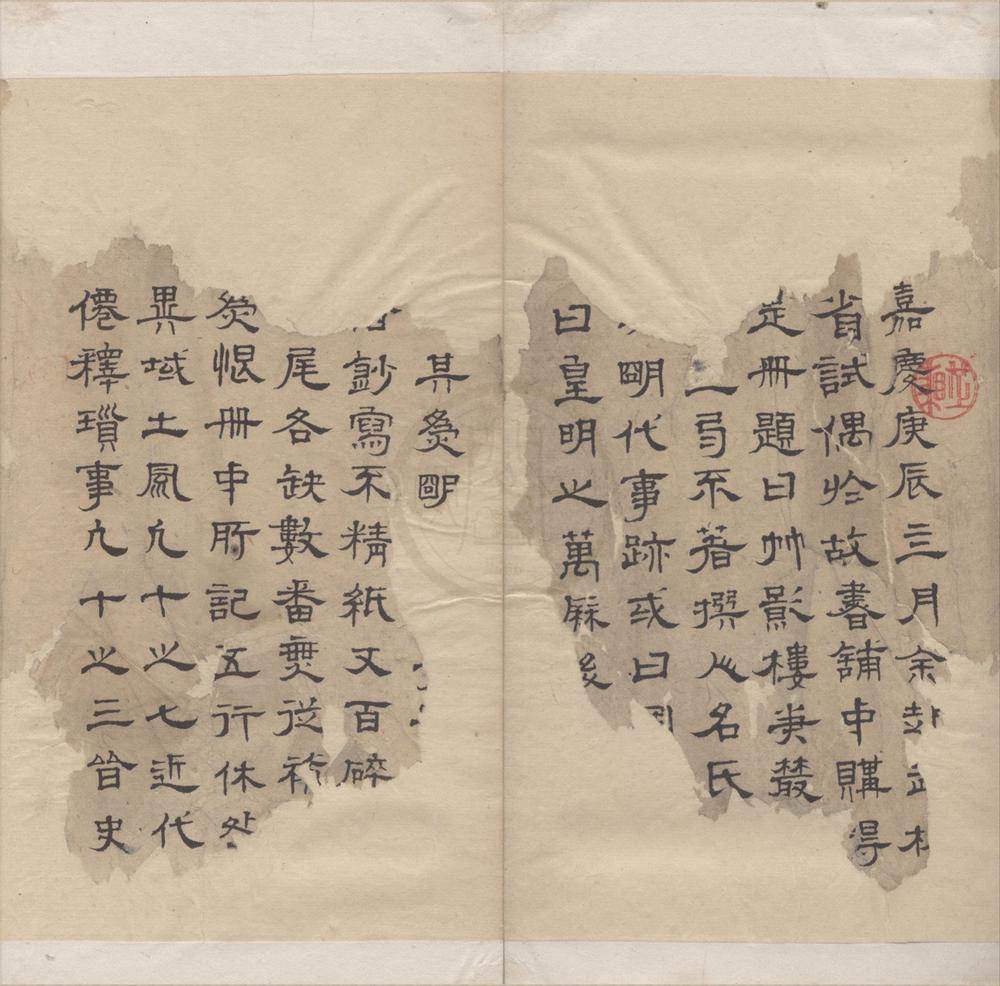 嘉慶庚辰三月余赴武林
省試偶於故書舖中購得
是冊題曰竹影樓叢
一号不著撰人名氏
明代事跡或曰國
曰皇明之萬厤後
其為明
鈔寫不精紙又百碎
尾各缺數番無從補
為恨冊中所記五行休咎
異域土風凡十之七近代
僊釋瑣事凡十之三皆史